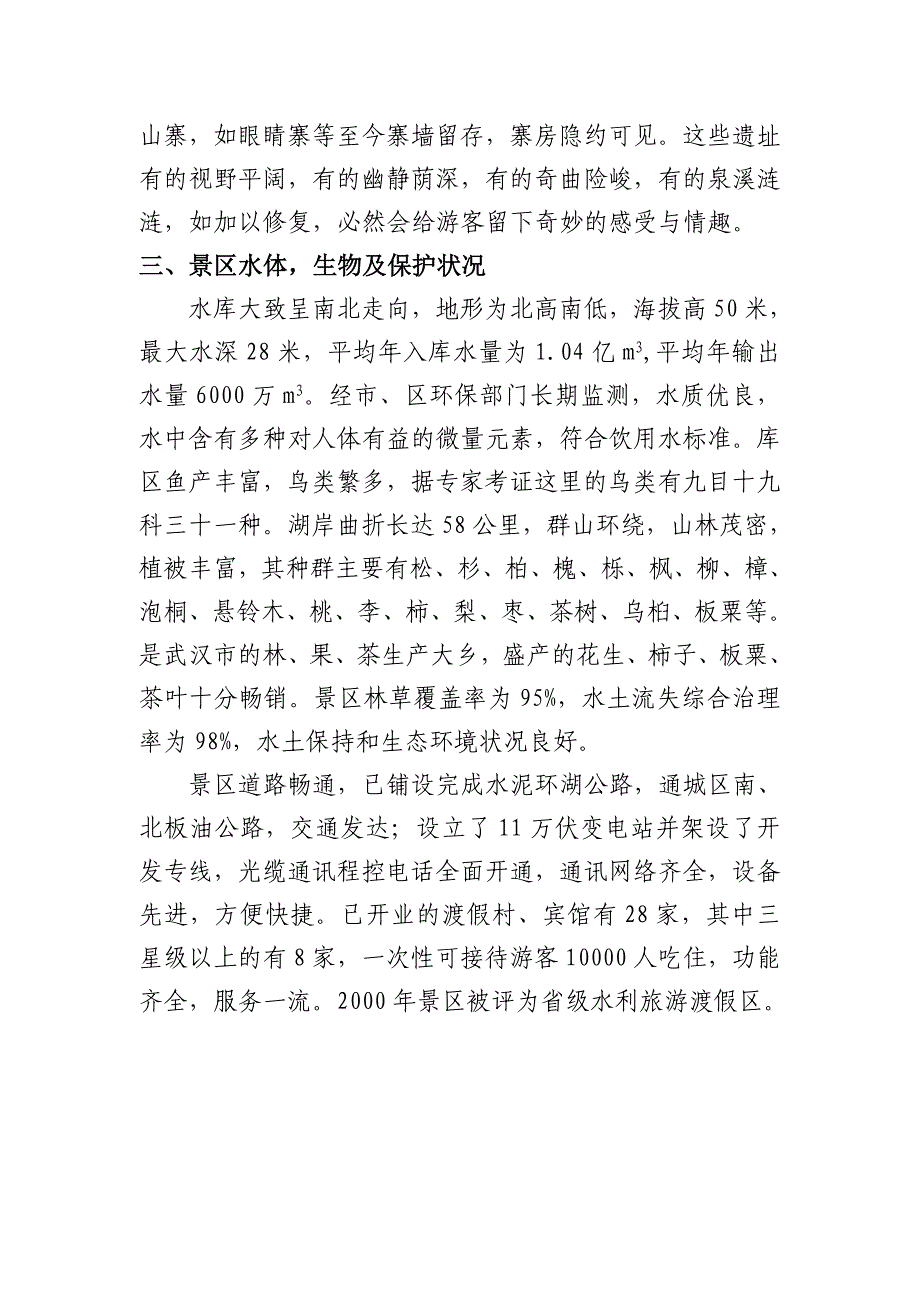 山寨，如眼睛寨等至今寨墙留存，寨房隐约可见。这些遗址
有的视野平阔，有的幽静荫深，有的奇曲险峻，有的泉溪涟
涟，如加以修复，必然会给游客留下奇妙的感受与情趣。
三、景区水体，生物及保护状况
水库大致呈南北走向，地形为北高南低，海拔高 50 米，
最大水深 28 米，平均年入库水量为 1.04 亿 m³,平均年输出
水量 6000 万 m³。经市、区环保部门长期监测，水质优良，
水中含有多种对人体有益的微量元素，符合饮用水标准。库
区鱼产丰富，鸟类繁多，据专家考证这里的鸟类有九目十九
科三十一种。湖岸曲折长达 58 公里，群山环绕，山林茂密，
植被丰富，其种群主要有松、杉、柏、槐、栎、枫、柳、樟、
泡桐、悬铃木、桃、李、柿、梨、枣、茶树、乌桕、板粟等。
是武汉市的林、果、茶生产大乡，盛产的花生、柿子、板粟、
茶叶十分畅销。景区林草覆盖率为 95%，水土流失综合治理
率为 98%，水土保持和生态环境状况良好。
景区道路畅通，已铺设完成水泥环湖公路，通城区南、
北板油公路，交通发达；设立了 11 万伏变电站并架设了开
发专线，光缆通讯程控电话全面开通，通讯网络齐全，设备
先进，方便快捷。已开业的渡假村、宾馆有 28 家，其中三
星级以上的有 8 家，一次性可接待游客 10000 人吃住，功能
齐全，服务一流。2000 年景区被评为省级水利旅游渡假区。